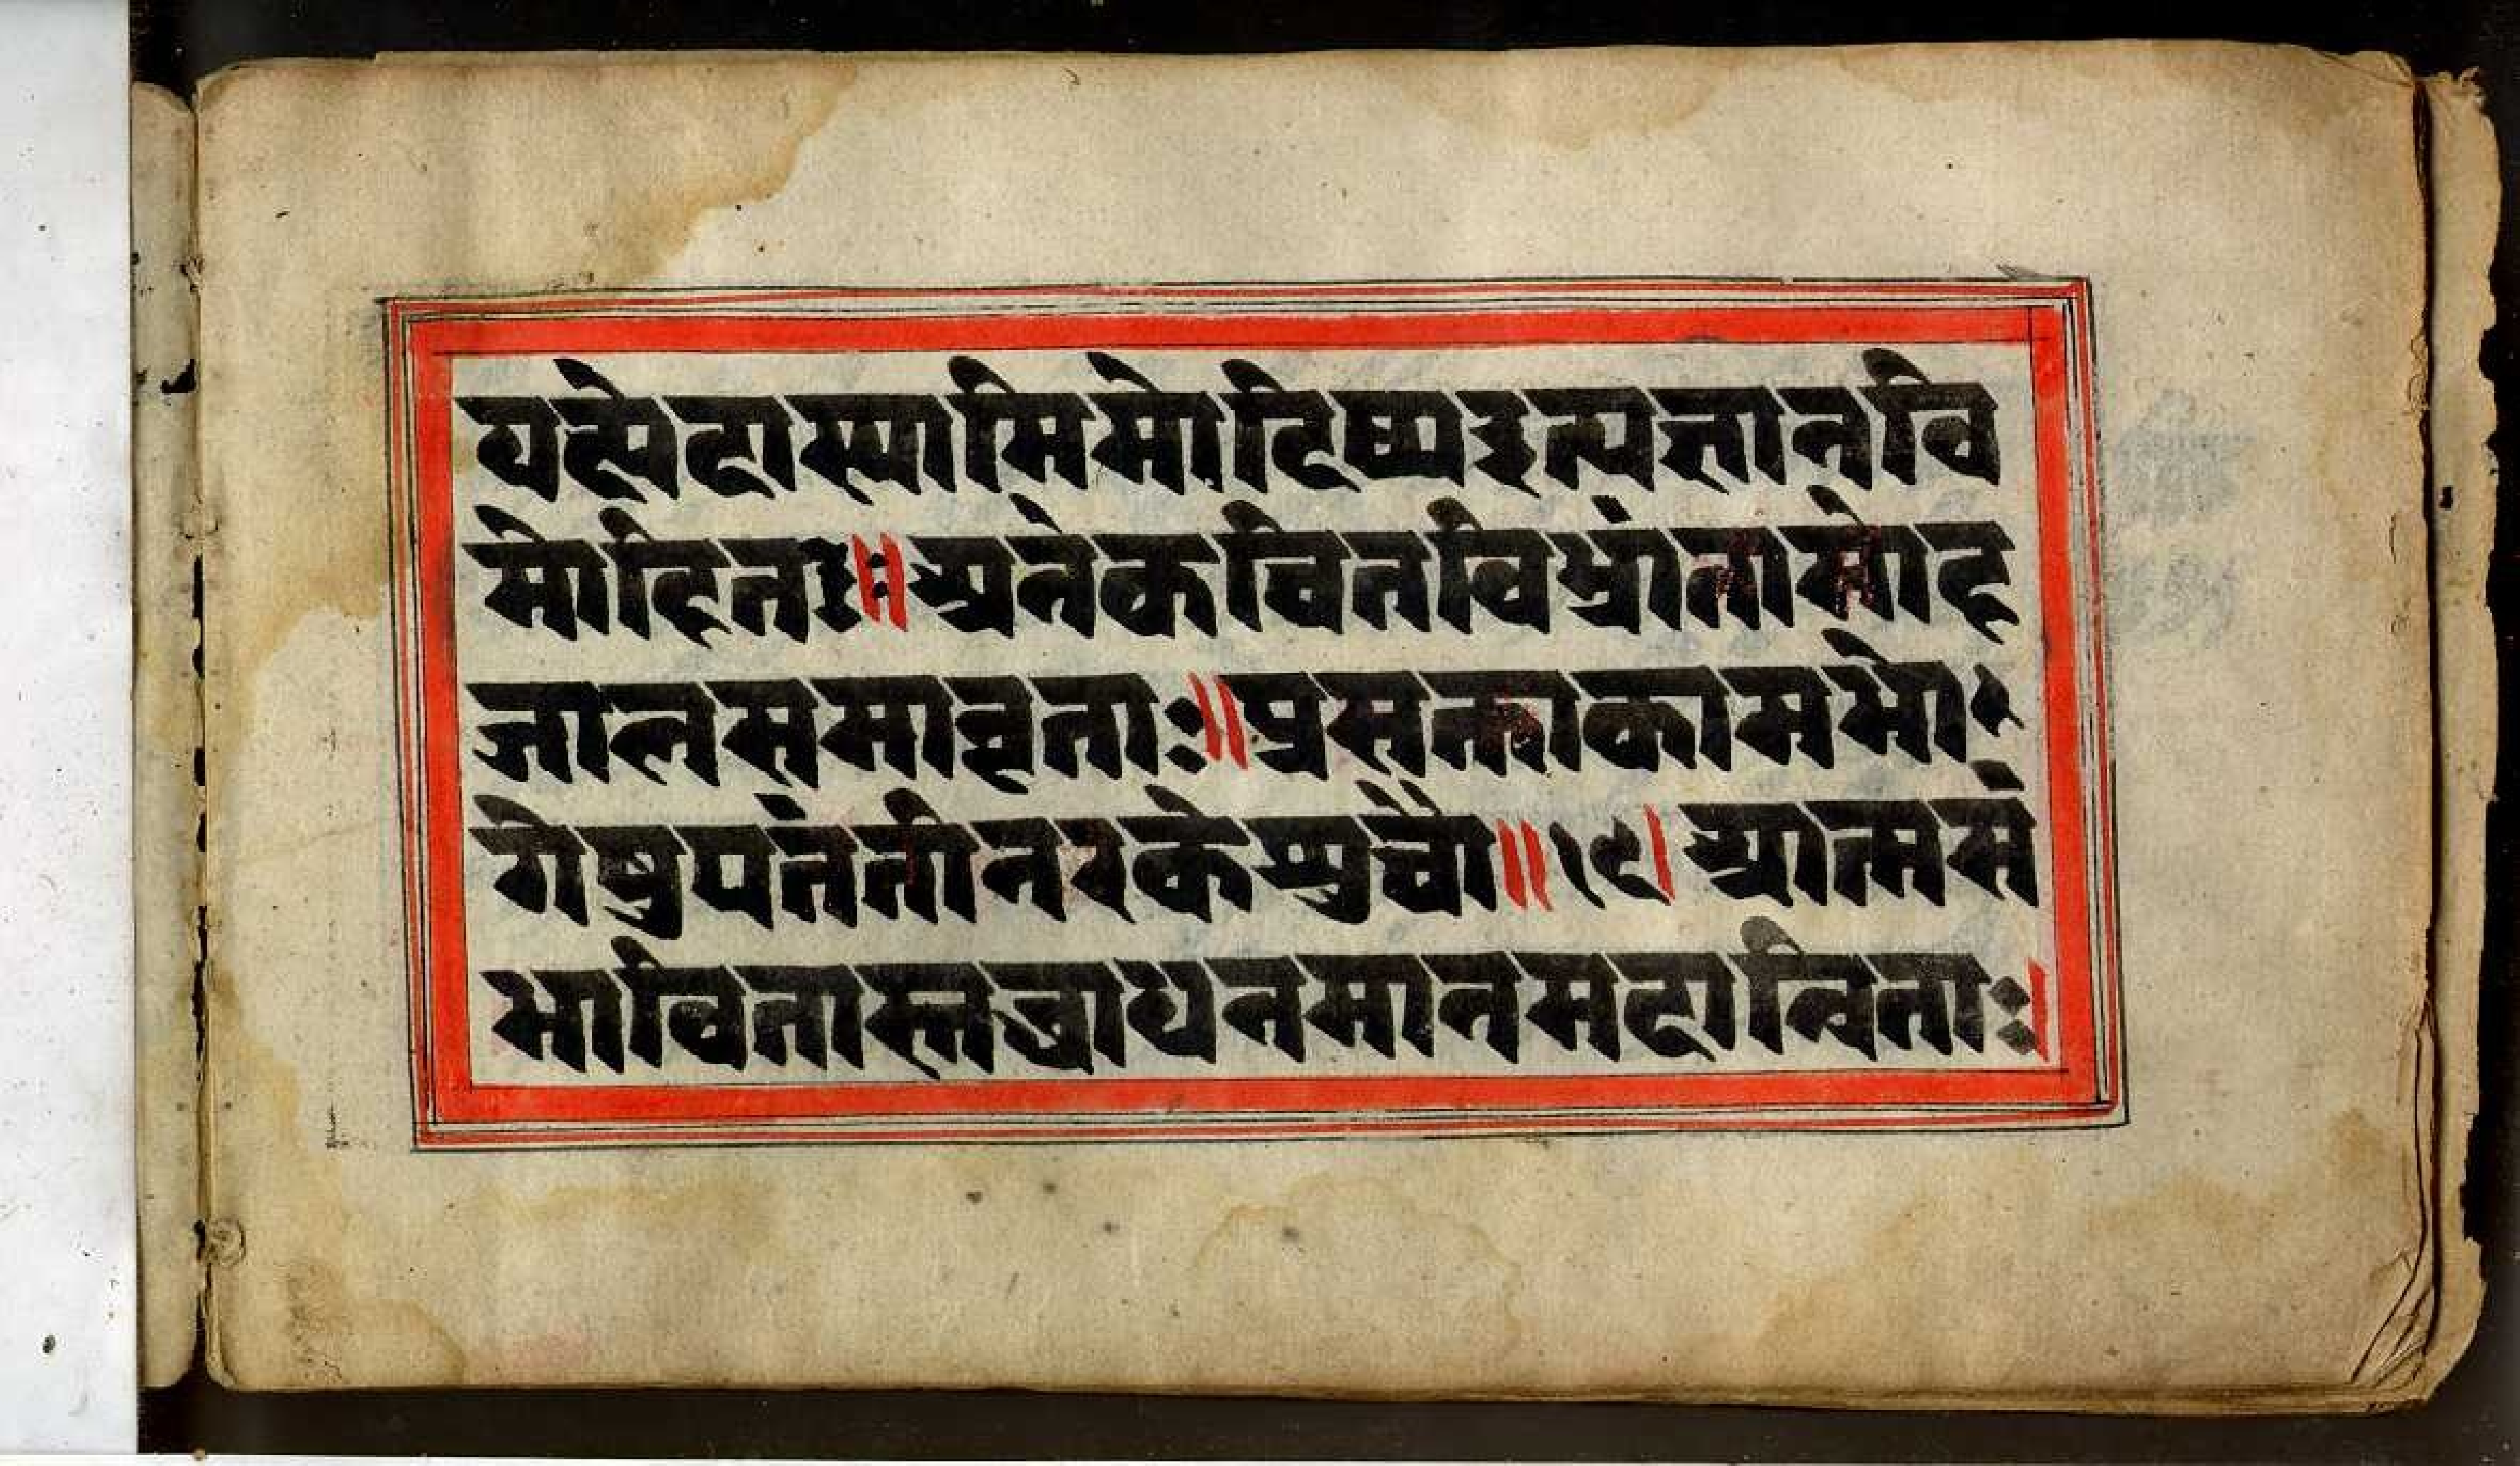 यक्ष्येदास्यामिमोदिष्यइत्यज्ञानवि
मोहितः॥अनेकचितविभ्रांतामोह
जालसमावृताः॥प्रसक्ताकामभो
गेषुपतंतीनरकेशुचौ॥१९।आत्मसं
भावितास्तब्धाधनमानमदान्विताः।